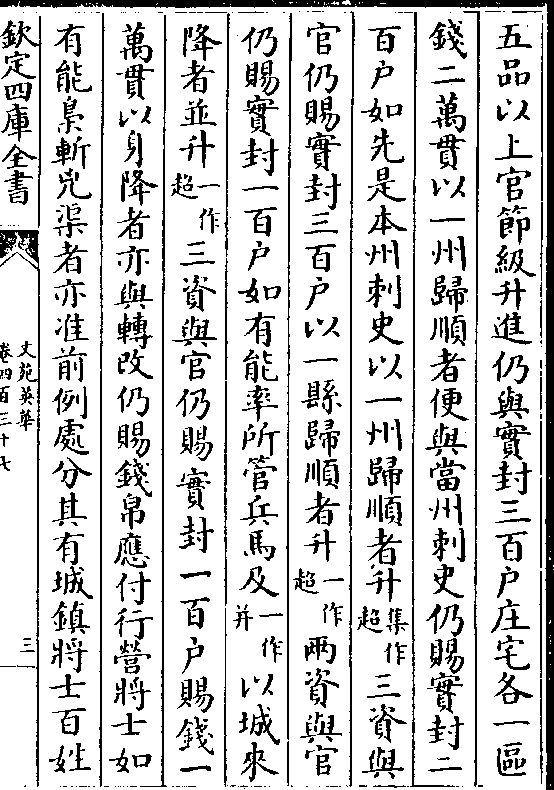 五品以上官節級升進仍與實封三百户庄宅各一區
錢二萬貫以一州歸順者便與當州刺史仍賜實封二
百户如先是本州刺史以一州歸順者升集作超三資與
官仍賜實封三百户以一縣歸順者升一作超兩資與官
仍賜實封一百户如有能率所管兵馬及一作并以城來
降者並升一作超三資與官仍賜實封一百户賜錢一
萬貫以身降者亦與轉改仍賜錢帛應付行營將士如
有能梟斬兇渠者亦准前例處分其有城鎮將士百姓
欽定四庫全書
文苑英華
卷四百三十七
三